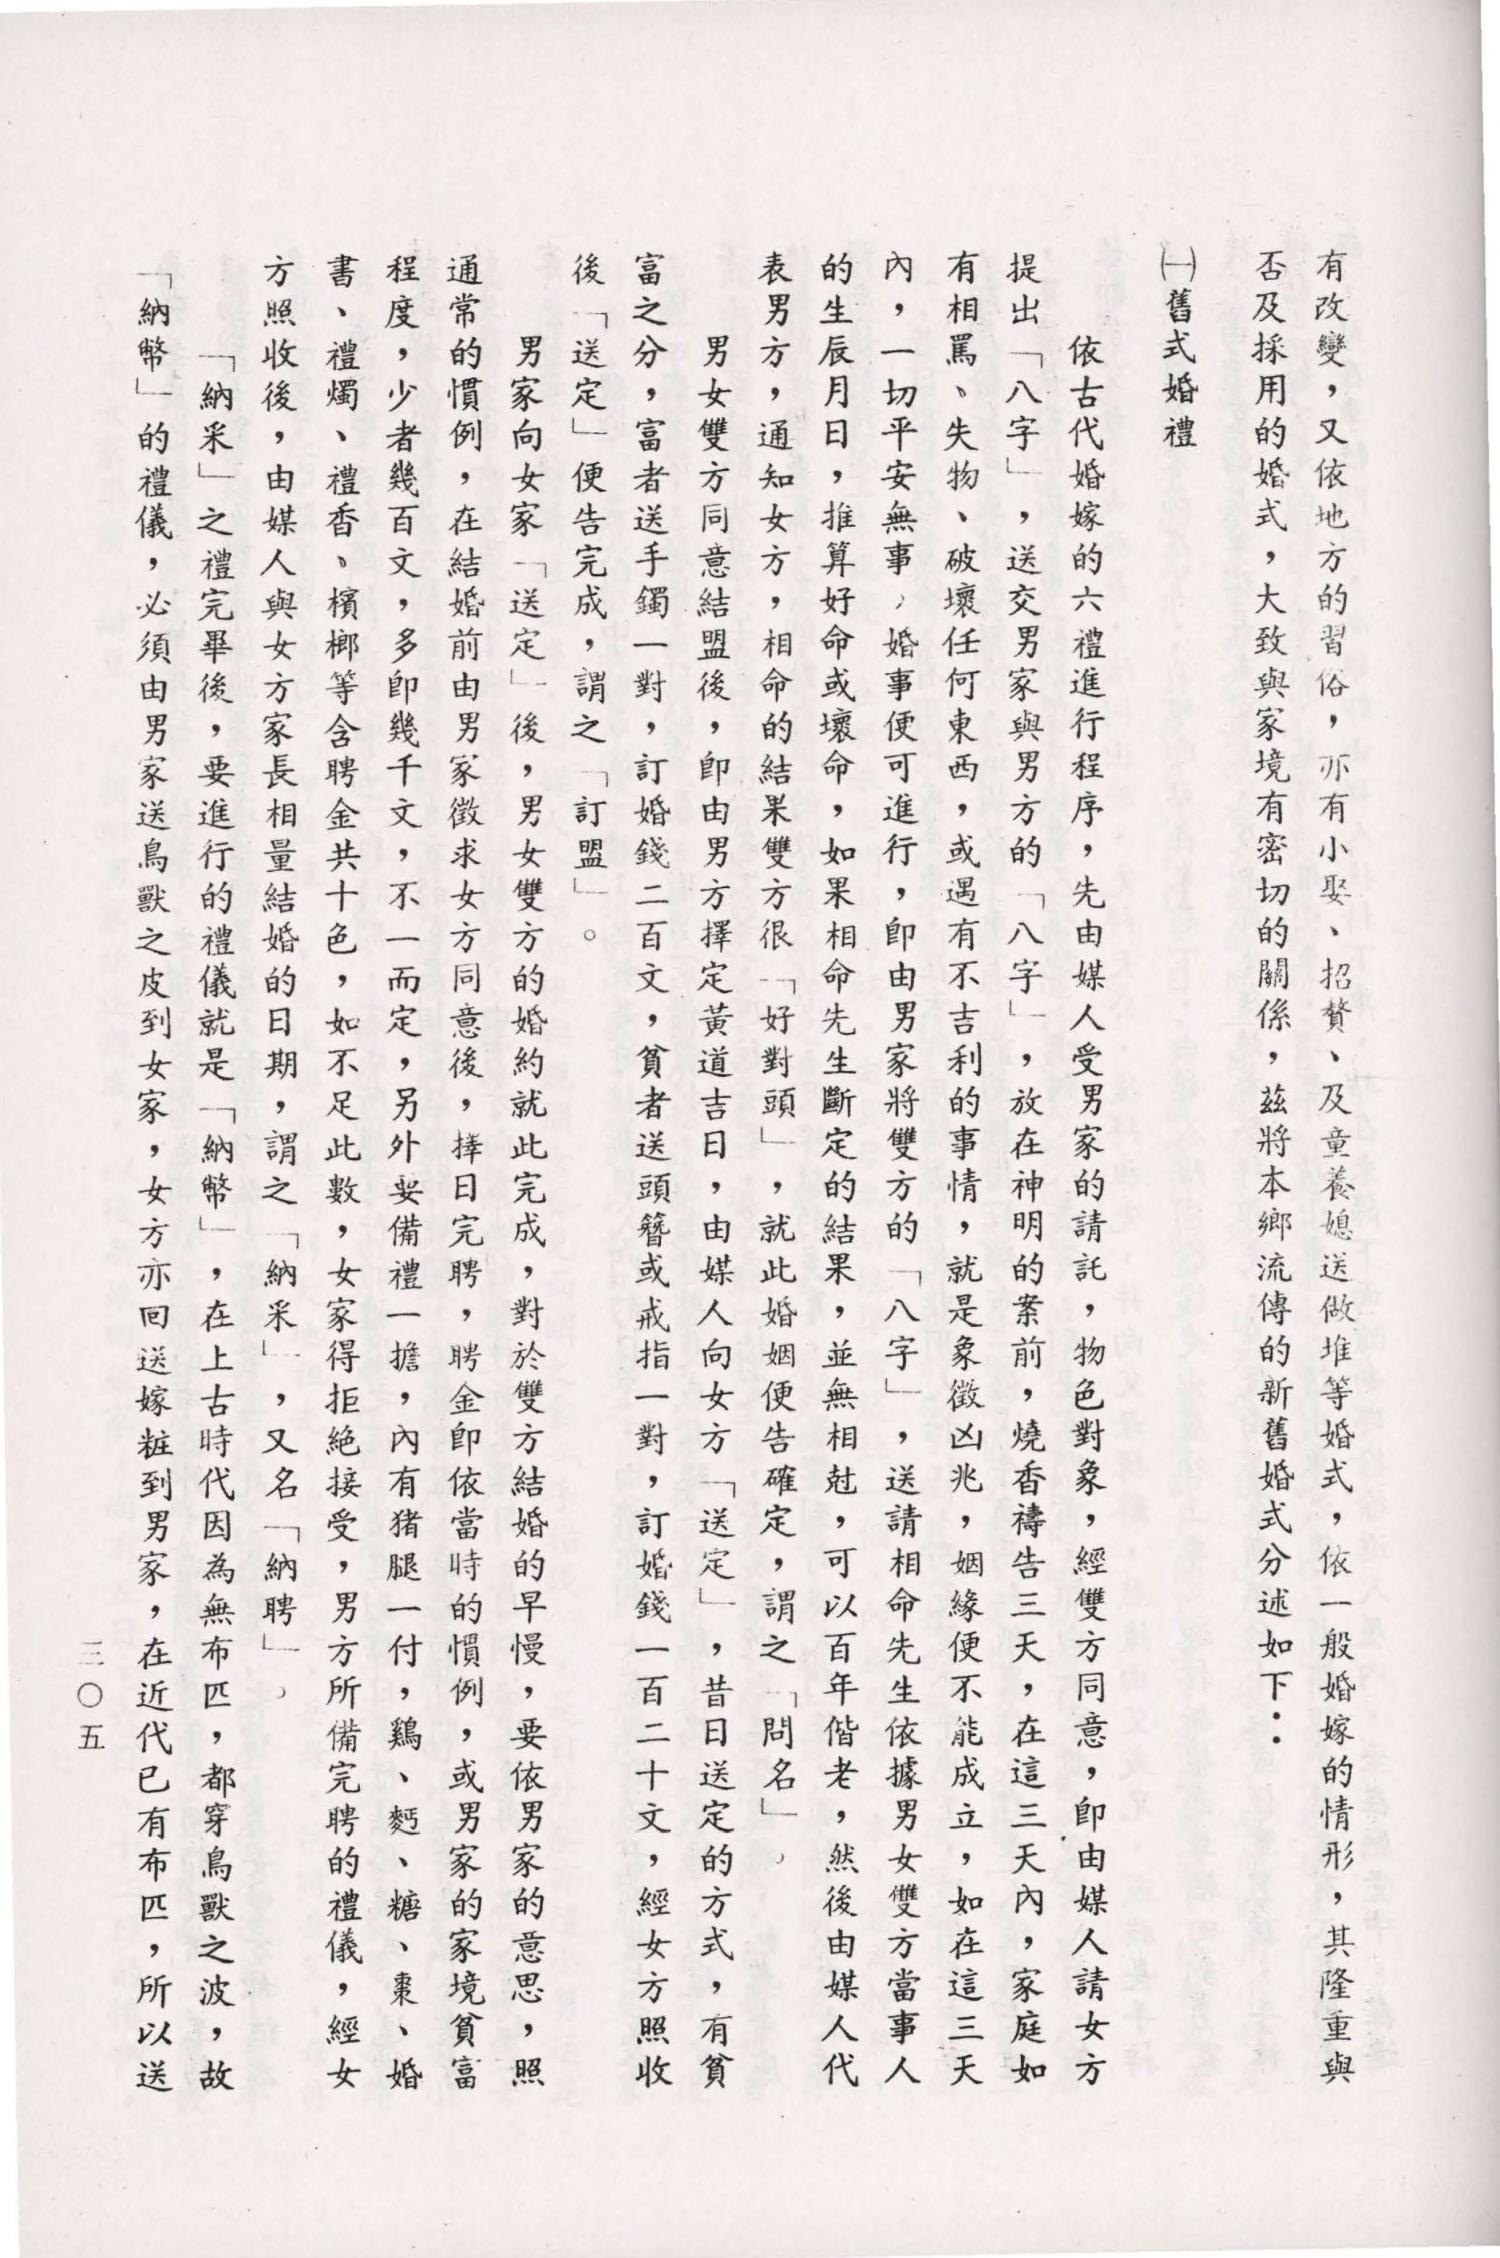 有改變，又依地方的習俗，亦有小娶、招贅、及童養媳送做堆等婚式，依一般婚嫁的情形，其隆重與
否及採用的婚式，大致與家境有密切的關係，茲將本鄉流傳的新舊婚式分述如下：
㈠舊式婚禮
依古代婚嫁的六禮進行程序，先由媒人受男家的請託，物色對象，經雙方同意，即由媒人請女方
提出「八字」，送交男家與男方的「八字」，放在神明的案前，燒香禱告三天，在這三天內，家庭如
有相罵、失物、破壞任何東西，或遇有不吉利的事情，就是象徵凶兆，姻緣便不能成立，如在這三天
內，一切平安無事，婚事便可進行，即由男家將雙方的「八字」，送請相命先生依據男女雙方當事人
的生辰月日，推算好命或壞命，如果相命先生斷定的結果，並無相尅，可以百年偕老，然後由媒人代
表男方，通知女方，相命的結果雙方很「好對頭」，就此婚姻便告確定，謂之「問名」。
男女雙方同意結盟後，即由男方擇定黃道吉日，由媒人向女方「送定」，昔日送定的方式，有貧
富之分，富者送手鐲一對，訂婚錢二百文，貧者送頭簪或戒指一對，訂婚錢一百二十文，經女方照收
後「送定」便告完成，謂之「訂盟」。
男家向女家「送定」後，男女雙方的婚約就此完成，對於雙方結婚的早慢，要依男家的意思，照
通常的慣例，在結婚前由男家徵求女方同意後，擇日完聘，聘金即依當時的慣例，或男家的家境貧富
程度，少者幾百文，多即幾千文，不一而定，另外要備禮一擔，內有猪腿一付，鷄、麵、糖、棗、婚
書、禮燭、禮香、檳榔等含聘金共十色，如不足此數，女家得拒絕接受，男方所備完聘的禮儀，經女
方照收後，由媒人與女方家長相量結婚的日期，謂之「納采」，又名「納聘」。
「納采」之禮完畢後，要進行的禮儀就是「納幣」，在上古時代因為無布匹，都穿鳥獸之波，故
「納幣」的禮儀，必須由男家送鳥獸之皮到女家，女方亦回送嫁粧到男家，在近代已有布匹，所以送
三〇五